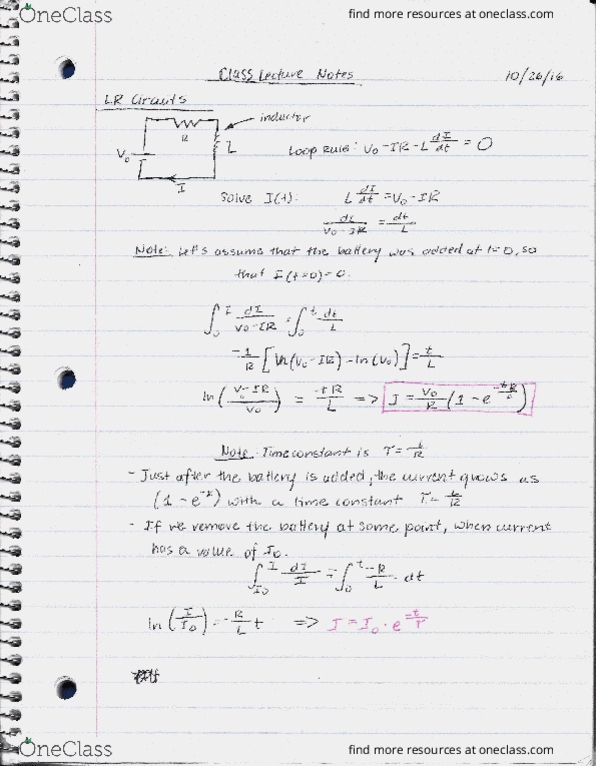 OneClass
find more resources at oneclass.com
Class Lecture Notes 10/26/16
LR Circuits
inductor
R
V₀ L
I
Loop Rule: V₀ - IR - L dI/dt = 0
Solve I(t): L dI/dt = V₀ - IR
dI/(V₀ - IR) = dt/L
Note: Let's assume that the battery was added at t=0, so
that I(t=0)=0.
∫₀^I dI/(V₀-IR) = ∫₀^t dt/L
-1/R [ln(V₀-IR) - ln(V₀)] = t/L
ln((V₀-IR)/V₀) = -tR/L => I = V₀/R (1 - e^(-tR/L))
Note: Time constant is τ = L/R
- Just after the battery is added, the current grows as
(1 - e^-x) with a time constant τ = L/R
- If we remove the battery at some point, when current
has a value of I₀.
∫_I₀^I dI/I = ∫₀^t -R/L dt
ln(I/I₀) = -R/L t => I = I₀ · e^(-t/τ)
OneClass
find more resources at oneclass.com